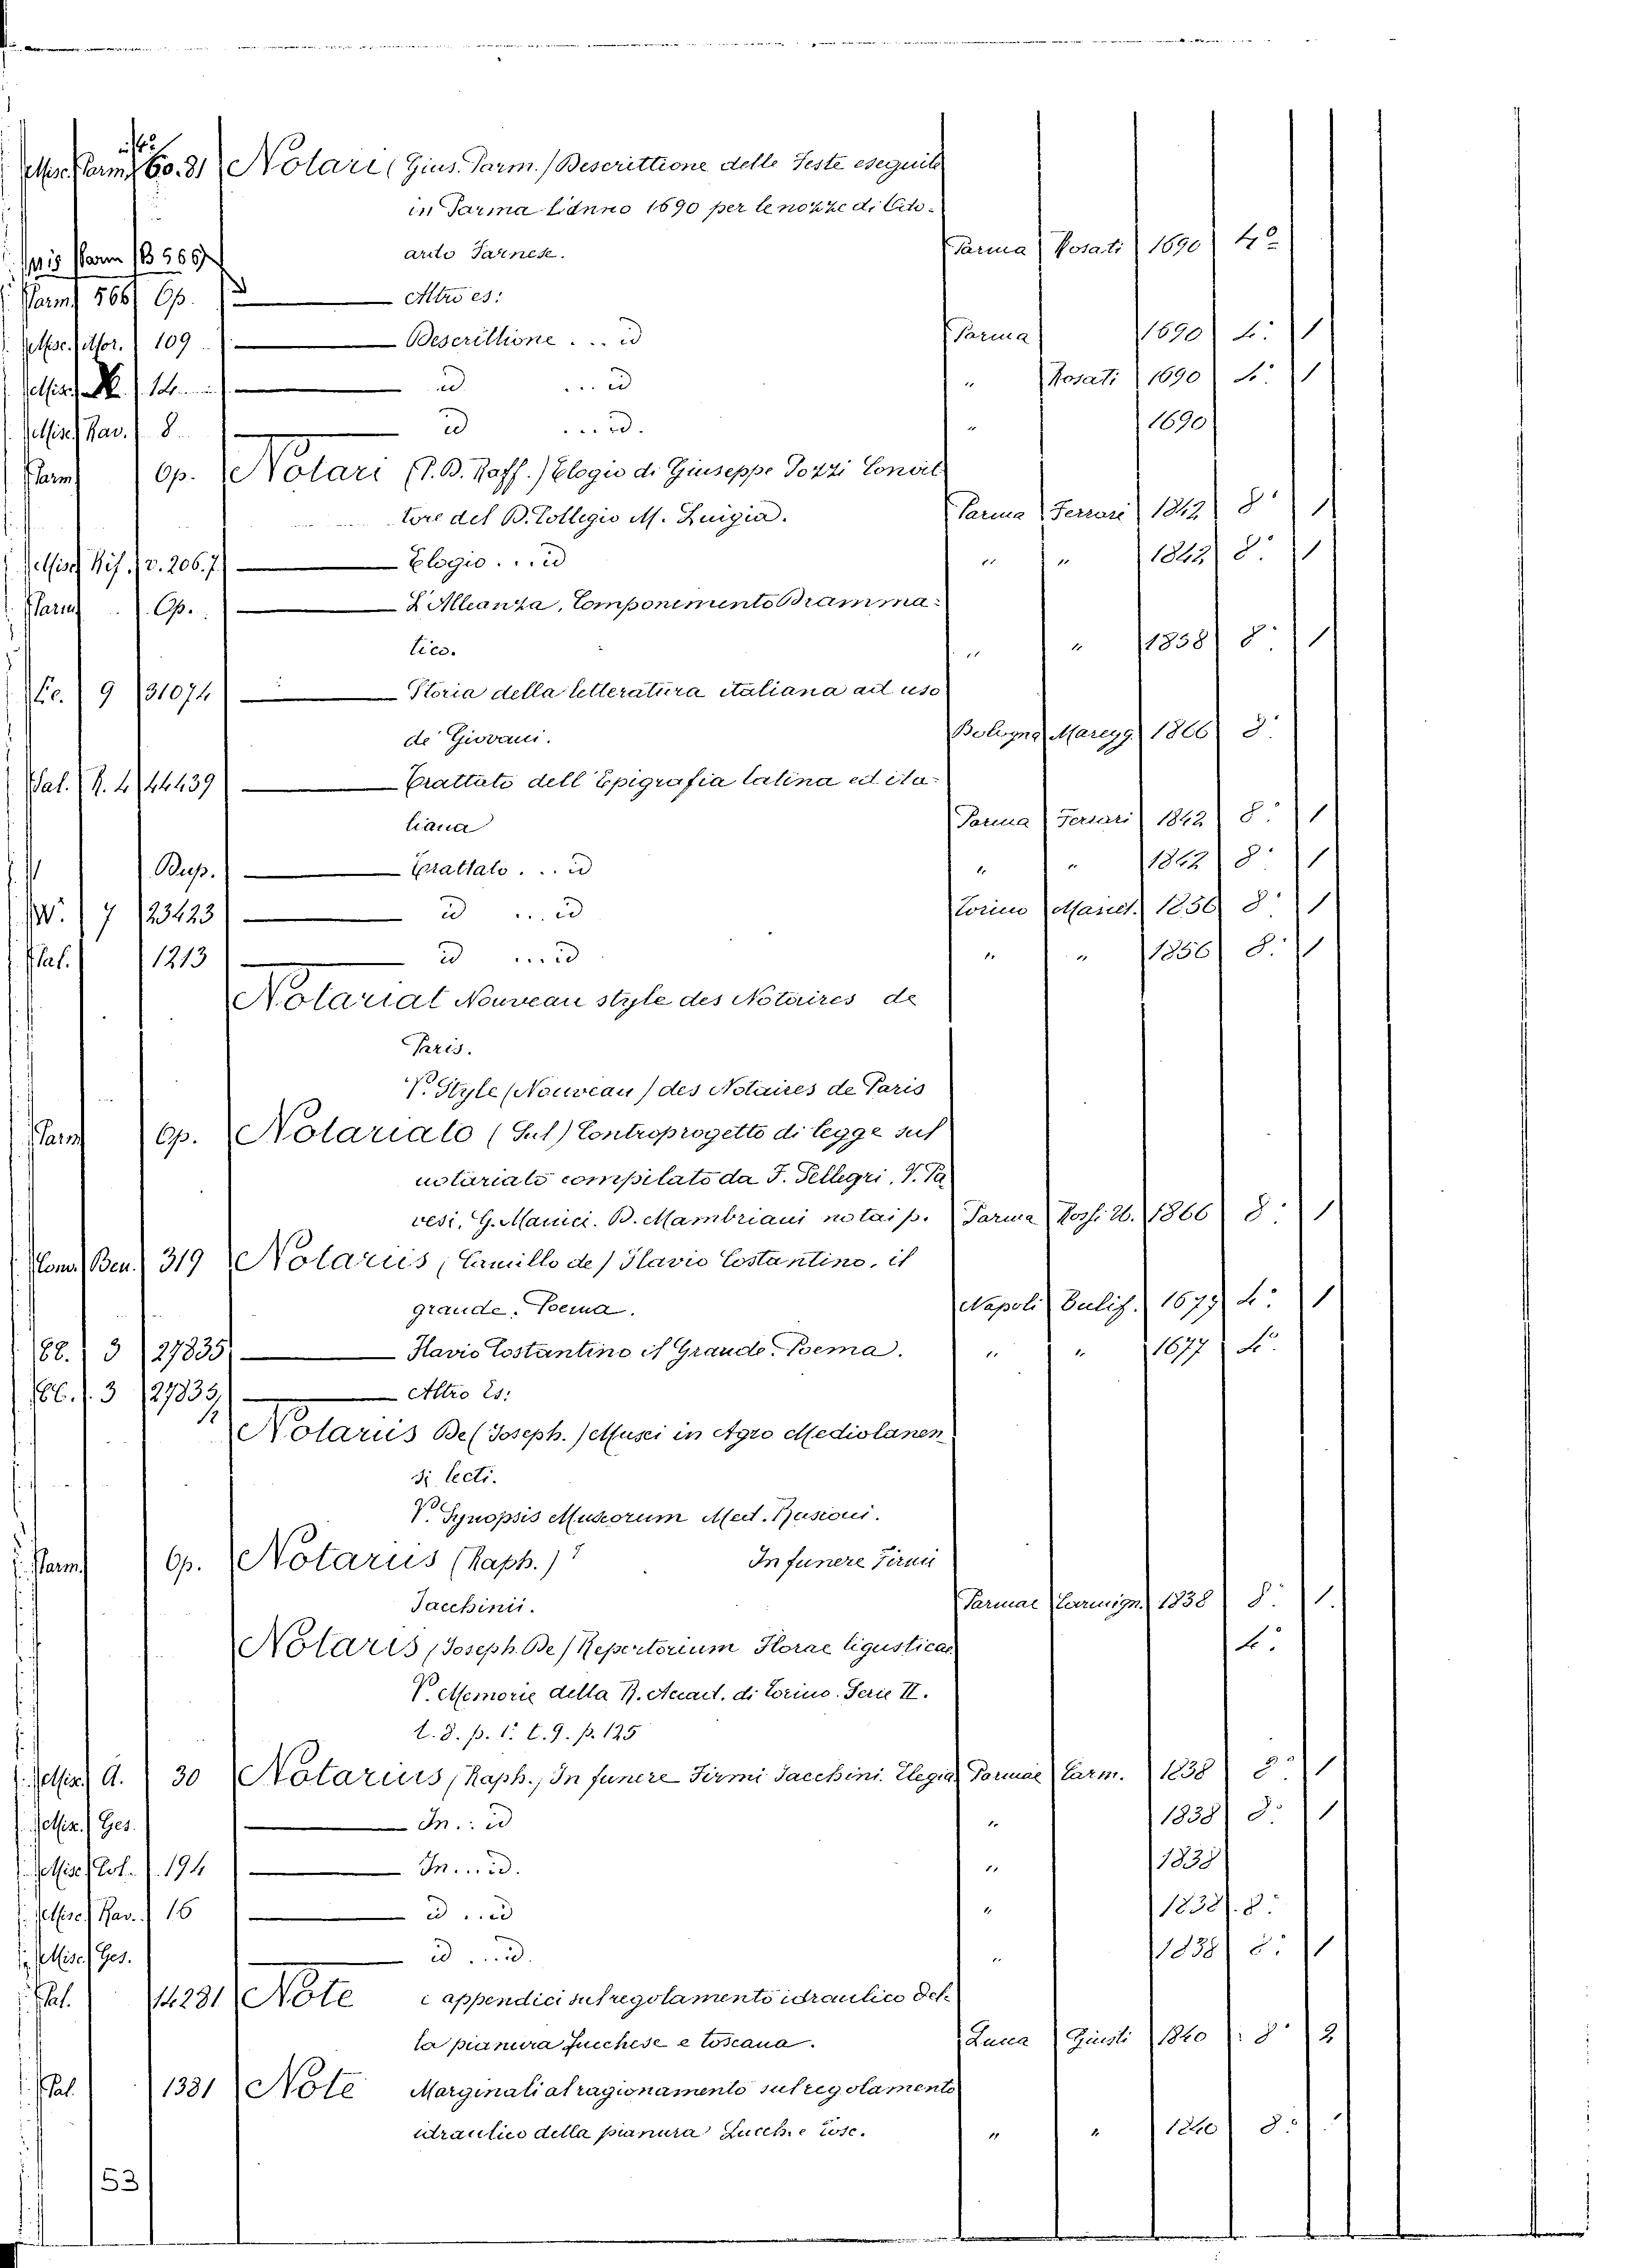 Misc. Parm. 60. 31 Notari (Gius. Parm.) Descrittione delle Feste eseguite
in Parma l'anno 1690 per le nozze di Odo-
ardo Farnese. Parma Rosati 1690 4º
Parm. 566 Op. — Altro es:
Misc. Mor. 109 — Descrittione ... id Parma 1690 4: 1
Misc. 14 — id ... id " Rosati 1690 4: 1
Misc. Rav. 8 — id ... id. " 1690
Parm. Op. Notari (P. D. Raff.) Elogio di Giuseppe Pozzi Consul
tore del D. Collegio M. Luigia. Parma Ferrari 1842 8: 1
Misc. Rif. v. 206.7. — Elogio ... id " " 1842 8: 1
Parm. Op. — L'Alleanza, Componimento Dramma-
tico. " " 1858 8: 1
9 31074 — Storia della letteratura italiana ad uso
de' Giovani. Bologna Maregg. 1866 8:
Pal. R. 4 44439 — Trattato dell'Epigrafia latina ed ita-
liana Parma Ferrari 1842 8: 1
Dup. — Trattato ... id " " 1842 8: 1
W. 7 23423 — id ... id Torino Mariet. 1856 8: 1
Pal. 1213 — id ... id " " 1856 8: 1
Notariat Nouveau style des Notaires de
Paris.
V. Style (Nouveau) des Notaires de Paris
Parm. Op. Notariato (Sul) Controprogetto di legge sul
notariato compilato da F. Pellegri, V. Pa
vesi, G. Manici. B. Mambriani notai p. Parma Rossi U. 1866 8: 1
Conv. Ben. 319 Notariis (Camillo de) Flavio Costantino, il
grande. Poema. Napoli Bulif. 1677 4: 1
3 27835 — Flavio Costantino il Grande. Poema. " " 1677 4:
3 27833 — Altro Es:
Notariis De (Joseph.) Musci in Agro Mediolanen
si lecti.
V. Synopsis Muscorum Med. Pusioni.
Parm. Op. Notarius (Raph.) In funere Firmi
Jacchinii. Parmae Carmign. 1838 8: 1.
Notaris (Joseph. De) Repertorium Florae ligusticae 4:
V. Memorie della R. Accad. di Torino. Serie II.
t. 8. p. 1. t. 9. p. 125
Misc. A. 30 Notarius (Raph.) In funere Firmi Jacchini. Elegia Parmae Carm. 1838 8: 1
Misc. Ges. — In .. id " 1838 8: 1
Misc. Col. 194 — In .... id. " 1838
Misc. Rav. 16 — id ... id " 1838 8:
Misc. Ges. — id ... id. " 1838 8: 1
Pal. 14281 Note e appendici sul regolamento idraulico del-
la pianura Lucchese e toscana. Lucca Giusti 1840 8: 2
Pal. 1381 Note Marginali al ragionamento sul regolamento
idraulico della pianura Lucch. e Tosc. " " 1840 8:
53